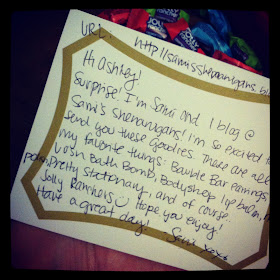 URL:
http://samisshenanigans.bl
Hi Ashley!
Surprise! I'm Sami and I blog @
Sami's Shenanigans! I'm so excited to
send you these goodies. These are all
my favorite things: Bauble Bar earrings,
Lush Bath Bomb, Bodyshop lip balm,
Pretty Stationary, and of course..
Jolly Ranchers Hope you enjoy!
Have a great day! -Sami xoxo
JOLLY